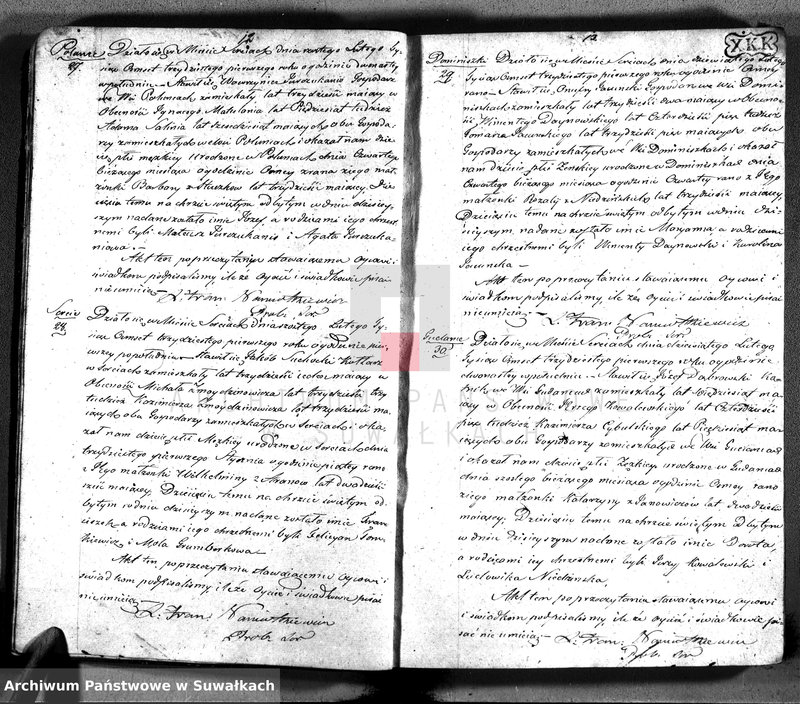 12
Polunce Działo się w Mieście Sereiach dnia szóstego Lutego Ty-
27. siąc Ośmset trzydziestego pierwszego roku o godzinie dwunastej
w południe. Stawił się Wawrzyniec Juszukanis Gospodarz
we Wsi Poluncach zamieszkały lat trzydzieści maiący w
Obecności Ignacego Matulania lat Pięćdziesiąt tudzież
Adama lat sześćdziesiąt maiących obu Gospoda-
rzy zamieszkałych we wsi Poluncach i okazał nam dzie-
cię płci męzkiej urodzone w Poluncach dnia Czwartego
bieżącego miesiąca o godzinie Ósmej z rana z iego mał-
żonki Barbary z lat trzydzieści maiącej. Dzie-
cięciu temu na chrzcie świętym odbytym w dniu dzisiej-
szym nadane zostało imie Józef a rodzicami iego chrzest-
nemi byli Mateusz Juszukanis i Agata Juszuka-
niowa.
Akt ten po przeczytaniu stawaiącemu Oycowi i
świadkom podpisaliśmy, iż że Oyciec i świadkowie pisać
nie umieią.
X. Fran: Narwoikiewicz
Prob: Ser
Sereie Działo się w Mieście Sereiach dnia szóstego Lutego Ty-
28. siąc Ośmset trzydziestego pierwszego roku o godzinie pier-
wszej po południu. Stawił się Jakób Suchocki Kotlarz
w Sereiach zamieszkały lat trzydzieści maiący w
Obecności Michała Zmoydzinowicza lat trzydzieści trzy
tudzież Kazimierza Zmoydzinowicza lat trzydzieści ma-
iących obu Gospodarzy zamieszkałych w Sereiach i oka-
zał nam dziecię płci Męzkiej urodzone w Sereiach dnia
trzydziestego pierwszego Stycznia o godzinie piątej rano
z Jego małżonki Wilhelminy z lat dwadzieścia
sześć maiącej. Dziecięciu temu na chrzcie świętym od-
bytym w dniu dzisiejszym nadane zostało imie Fran-
ciszek, a rodzicami iego chrzestnemi byli Felicyan Tom-
kiewicz i Mola Grumborkowa
Akt ten po przeczytaniu stawaiącemu Oycowi i
świadkom podpisaliśmy iż że Oyciec i świadkowie pisać
nie umieią.
X. Fran: Narwoikiewicz
Prob: Ser
13
XKK
Dominiszki Działo się w Mieście Sereiach dnia dziewiątego Lutego
29. Tysiąc Ośmset trzydziestego pierwszego roku o godzinie Ósmej
rano. Stawił się Onufry Jasiński Gospodarz we Wsi Domi-
niszkach zamieszkały lat trzydzieści dwa maiący w Obecno-
ści Wincentego Daynowskiego lat Czterdzieści pięć tudzież
Tomasza lat trzydzieści pięć maiących obu
Gospodarzy zamieszkałych we Wsi Dominiszkach i okazał
nam dziecię płci Żeńskiej urodzone w Dominiszkach dnia
Czwartego bieżącego miesiąca o godzinie Czwartej rano z Jego
małżonki Rozalii z lat trzydzieści maiącej.
Dziecięciu temu na chrzcie świętym odbytym w dniu dzi-
sieyszym, nadane zostało imie Maryanna a rodzicami
iego chrzestnemi byli Wincenty Daynowski i Karolina
Jasińska.
Akt ten po przeczytaniu stawaiącemu Oycowi i
świadkom podpisaliśmy, iż że Oyciec i świadkowie pisać
nie umieią.
X. Fran: Narwoikiewicz
Prob: Ser
Gucianie Działo się w Mieście Sereiach dnia dziewiątego Lutego
30. Tysiąc Ośmset trzydziestego pierwszego roku o godzinie
dwunastej w południe. Stawił się Józef Dąbrowski Ka-
we Wsi Gucianach zamieszkały lat Pięćdziesiąt ma-
iący w Obecności Jerzego Kowalewskiego lat Czterdzieści
pięć tudzież Kazimierza Cybulskiego lat Pięćdziesiąt ma-
iących obu Gospodarzy zamieszkałych we Wsi Gucianach
i okazał nam dziecię płci Żeńskiej urodzone w Gucianach
dnia szóstego bieżącego miesiąca o godzinie Ósmej rano
z iego małżonki Katarzyny z Janowiczów lat dwadzieścia
maiącej. Dziecięciu temu na chrzcie świętym odbytym
w dniu dzisiejszym nadane zostało imie Dorota,
a rodzicami iey chrzestnemi byli Jerzy Kowalewski i
Ludowika
Akt ten po przeczytaniu stawaiącemu Oycowi
i świadkom podpisaliśmy iż że Oyciec i świadkowie pi-
sać nie umieią. X. Fran: Narwoikiewicz
Prob: Ser
ARCHIWUM PAŃSTWOWE W
SUWAŁKACH
Archiwum Państwowe w Suwałkach